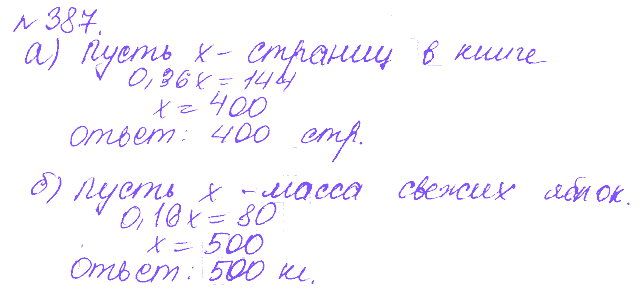 № 387.
а) Пусть х - страниц в книге
0,36х = 144
х = 400
Ответ: 400 стр.
б) Пусть х - масса свежих яблок.
0,16х = 80
х = 500
Ответ: 500 кг.